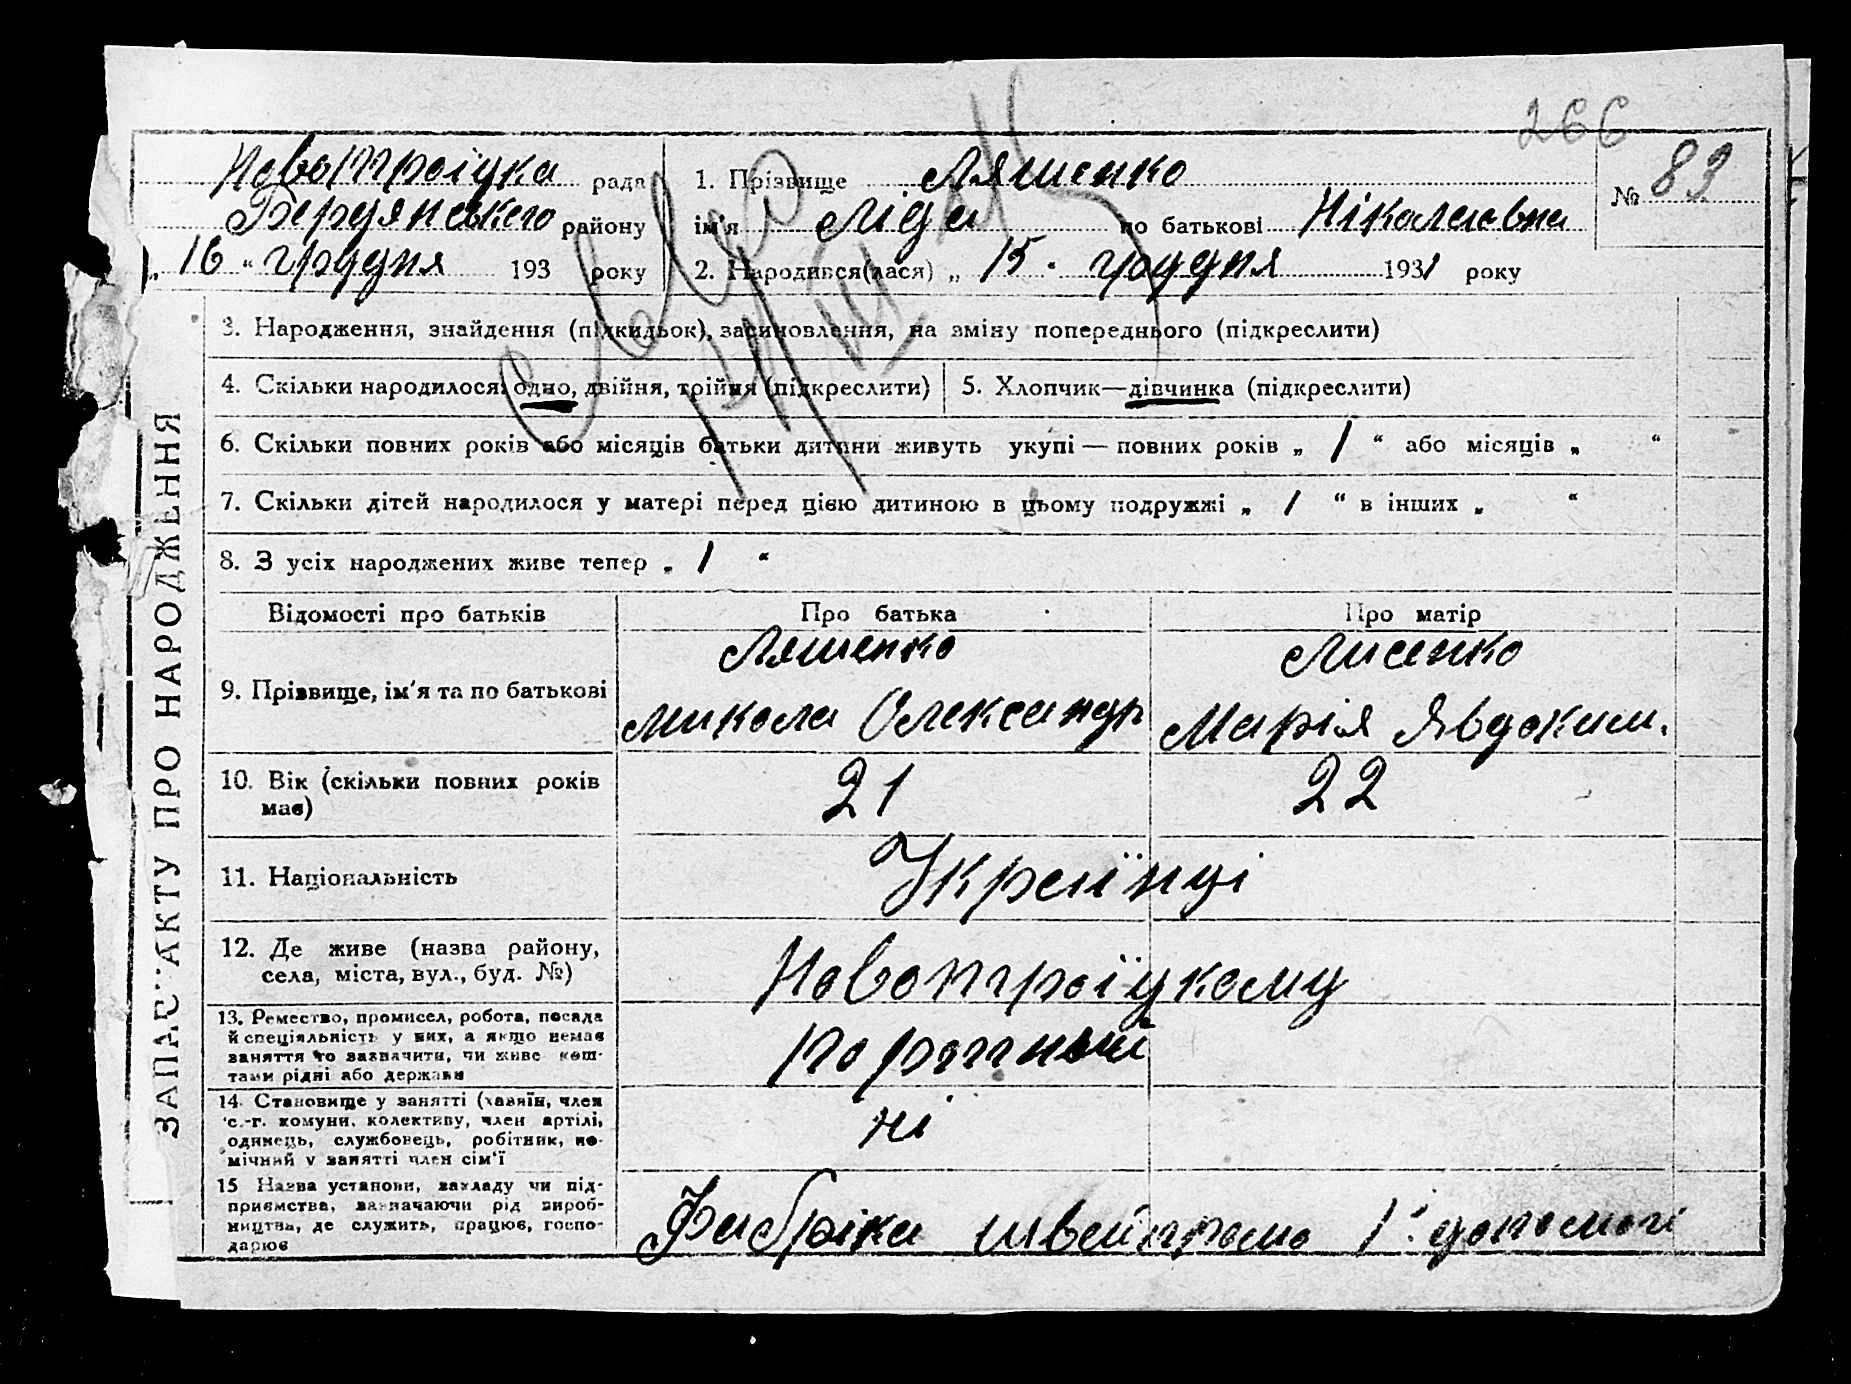 266
Новотроіцка рада
Бердянського району
„ 16 “ грудня 193 року
1. Прізвище Ляшенко
ім'я Ліда по батькові Ніколаєвна
2. Народився(лася) „ 15 . грудня 1931 року
№ 83
3. Народження, знайдення (підкидьок), засиновлення, на зміну попереднього (підкреслити)
4. Скільки народилося: одно, двійня, трійня (підкреслити) 5. Хлопчик—дівчинка (підкреслити)
6. Скільки повних років або місяців батьки дитини живуть укупі — повних років „ 1 “ або місяців „ “
7. Скільки дітей народилося у матері перед цією дитиною в цьому подружжі „ 1 “ в інших „ “
8. З усіх народжених живе тепер „ 1 “
ЗАПИС АКТУ ПРО НАРОДЖЕННЯ
Відомості про батьків Про батька Про матір
9. Прізвище, ім'я та по батькові
Ляшенко
Микола Олександр
Лисенко
Марія Явдоким.
10. Вік (скільки повних років має)
21 22
11. Національність
Українці
12. Де живе (назва району,
села, міста, вул., буд. №)
Новотроїцкому
13. Ремество, промисел, робота, посада
й спеціяльність у них, а якщо немає
заняття то зазначити, чи живе кош-
тами рідні або держави
портний
14. Становище у занятті (хазяїн, член
с.-г. комуни, колективу, член артілі,
одинець, службовець, робітник, по-
мічний у занятті член сім'ї
ні
15 Назва установи, закладу чи під-
приємства, зазначаючи рід вироб-
ництва, де служить, працює, госпо-
дарює
Фабріка швейпромо допомогі